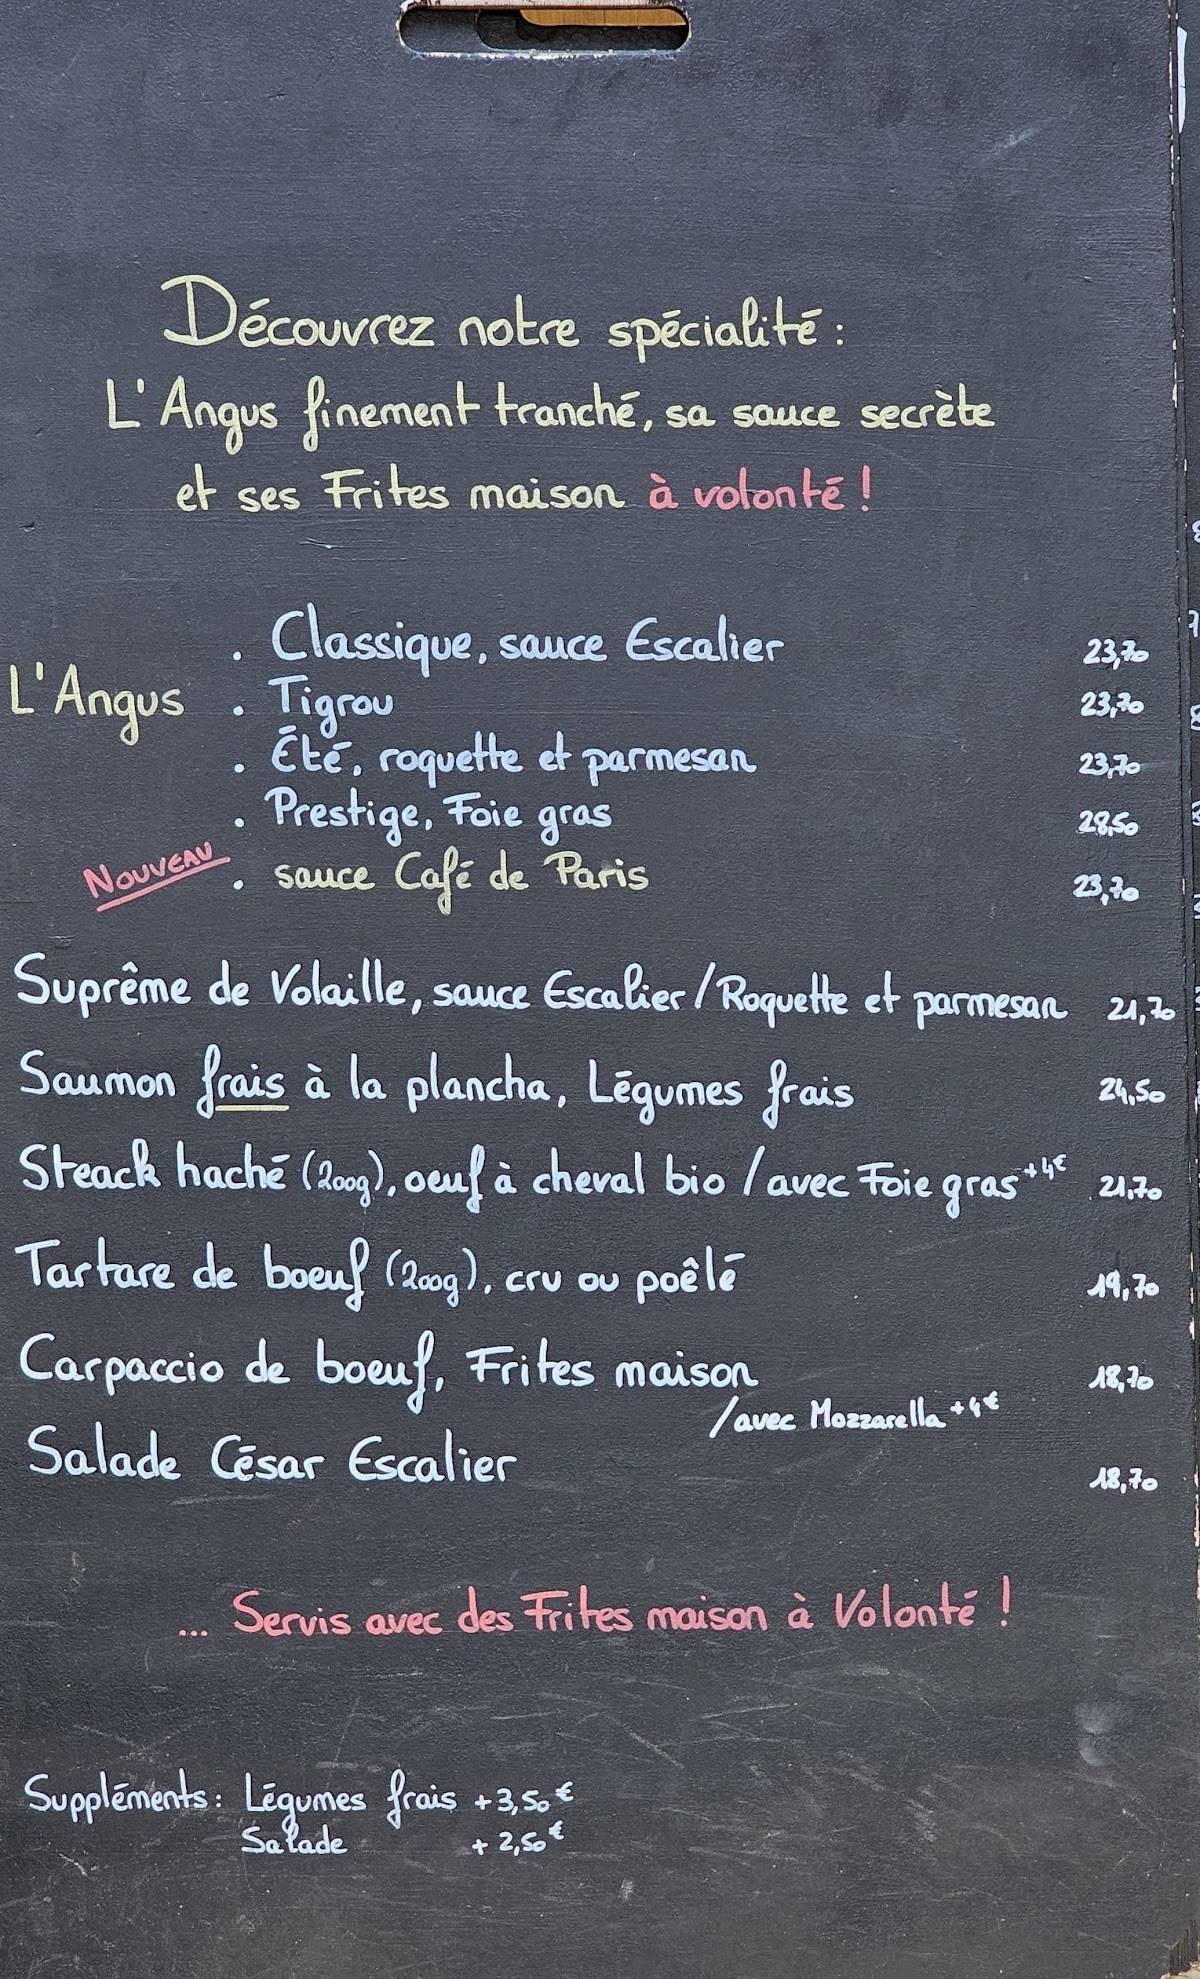 Découvrez notre spécialité :
L'Angus finement tranché, sa sauce secrète
et ses Frites maison à volonté !
. Classique, sauce Escalier 23,70
L'Angus . Tigrou 23,70
. Été, roquette et parmesan 23,70
. Prestige, Foie gras 28,50
Nouveau . sauce Café de Paris 23,70
Suprême de Volaille, sauce Escalier / Roquette et parmesan 21,70
Saumon frais à la plancha, Légumes frais 24,50
Steack haché (200g), oeuf à cheval bio / avec Foie gras +4€ 21,70
Tartare de boeuf (200g), cru ou poêlé 19,70
Carpaccio de boeuf, Frites maison 18,70
/ avec Mozzarella +4€
Salade César Escalier 18,70
... Servis avec des Frites maison à Volonté !
Suppléments : Légumes frais +3,50€
Salade + 2,50€